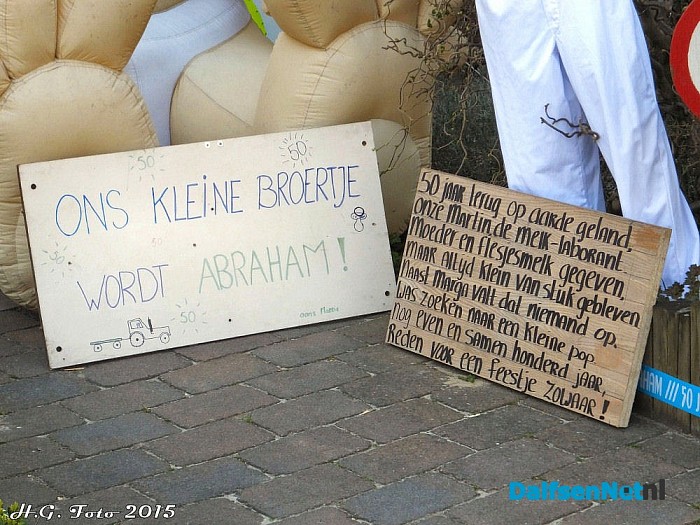 50
50
ONS KLEINE BROERTJE
50
50
WORDT ABRAHAM!
50
oons Matti
50 jaar terug op aarde geland,
onze Martin, de melk-laborant.
Moeder en flesjesmelk gegeven,
maar altyd klein van stuk gebleven
Naast Marga valt dat niemand op.
was zoeken naar een kleine pop
nog even en samen honderd jaar,
Reden voor een feestje ZOWAAR!
HAM /// 50 J
DalfsenNet.nl
H.G. Foto 2015